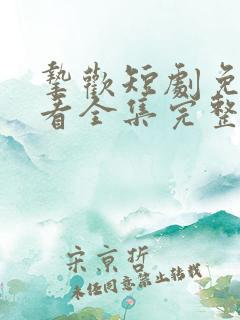 挚歡短劇免
看全集完整
宋京哲
未经同意禁止转载